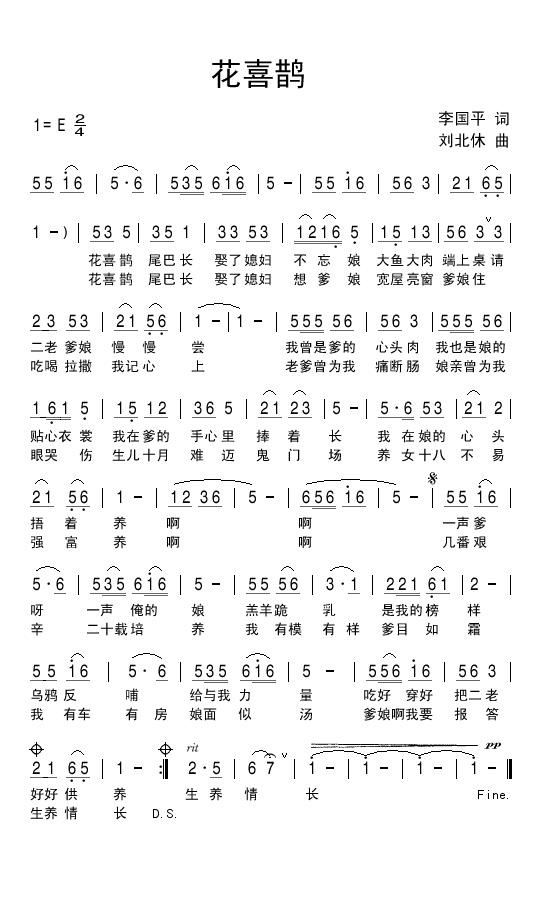 花喜鹊
1=E 2/4
李国平 词
刘北休 曲
55 16 | 5·6 | 535 616 | 5 - | 55 16 | 56 3 | 21 65 |
1 -) | 53 5 | 35 1 | 33 53 | 1216 5 | 15 13 | 56 3 3 |
花喜鹊 尾巴长 娶了媳妇 不忘娘 大鱼大肉 端上桌请
花喜鹊 尾巴长 娶了媳妇 想爹娘 宽屋亮窗 爹娘住
23 53 | 21 56 | 1 - | 1 - | 555 56 | 56 3 | 555 56 |
二老爹娘 慢慢尝 我曾是爹的 心头肉 我也是娘的
吃喝拉撒 我记心上 老爹曾为我 痛断肠 娘亲曾为我
161 5 | 15 12 | 36 5 | 21 23 | 5 - | 5·6 53 | 21 2 |
贴心衣裳 我在爹的 手心里 捧着长 我在娘的 心头
眼哭伤 生儿十月 难迈鬼门场 养女十八 不易
21 56 | 1 - | 12 36 | 5 - | 656 16 | 5 - | 𝄋 55 16 |
捂着养 啊 啊 一声爹
强富养 啊 啊 几番艰
5·6 | 535 616 | 5 - | 55 56 | 3·1 | 221 61 | 2 - |
呀 一声俺的 娘 羔羊跪 乳 是我的榜 样
辛 二十载培 养 我有模 有样 爹目如 霜
55 16 | 5·6 | 535 616 | 5 - | 556 16 | 56 3 |
乌鸦反 哺 给与我力 量 吃好穿好 把二老
我有车 有房 娘面似 汤 爹娘啊我要 报答
𝄌 21 65 | 1 - :‖ 𝄌 rit 2·5 | 6 7 ∨ | 1 - | 1 - | 1 - | 1 - ‖ pp
好好供 养 生养情 长 Fine.
生养情 长 D.S.